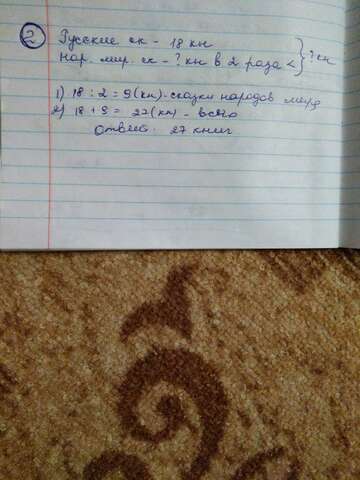 2 Русские ск - 18 кн
Нар. мир. ск - ? кн в 2 раза < ? кн
1) 18 : 2 = 9 (кн) - сказки народов мира
2) 18 + 9 = 27 (кн) - всего
Ответ: 27 книг